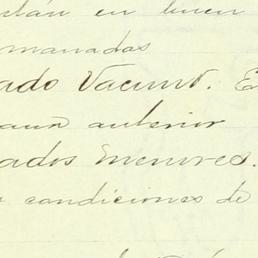 están en buen
manadas
ado Vacuno. E
anterior
ados menores.
condiciones de